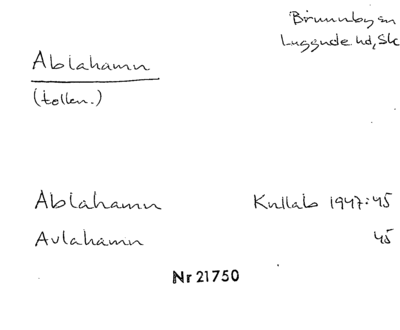 Brunnby sn
Luggude hd, Sk
Ablahamn
(tollen.)
Ablahamn Kullab 1947:45
Avlahamn 45
Nr 21750